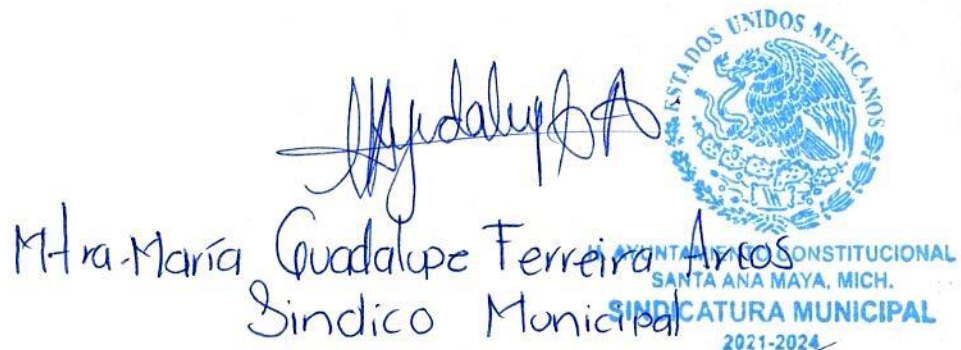 ESTADOS UNIDOS MEXICANOS
Mtra. María Guadalupe Ferreira Arcos
Sindico Municipal
H. AYUNTAMIENTO CONSTITUCIONAL
SANTA ANA MAYA, MICH.
SINDICATURA MUNICIPAL
2021-2024